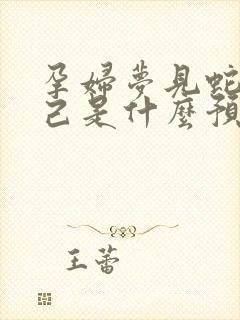 孕婦夢見蛇
己是什麼預
王蕾